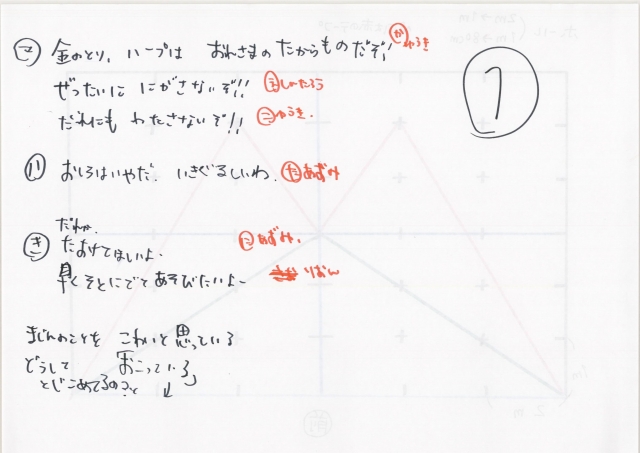 金のとり、ハープは おれさまの たからものだぞ! ゆうき
ぜったいに にがさないぞ!! しゅんたろう
だれにも わたさないぞ!! ゆうき.
ハ おしろはいやだ. いきぐるしいわ. た あずみ
だれか.
き たすけてほしいよー に あずみ.
早くそとにでてあそびたいよー りおん
まじんのことを こわいと思っている
どうして 「おこっている」
とじこめてるのこと ↓
7
2m
1m
前